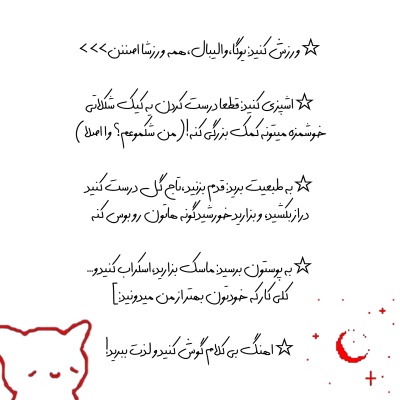 ☆ ورزش کنید: یوگا، والیبال، همه ورزشا اصننن>>>
☆ اشپزی کنید: قطعا درست کردن یه کیک شکلاتی
خوشمزه میتونه کمک بزرگی کنه!( من شکموعم؟ وا اصلا )
☆ به طبیعت برید: قدم بزنید، تاج گل درست کنید
دراز بکشید، و بزارید خورشید گونه هاتون رو بوس کنه
☆ به پوستون برسید: ماسک بزارید، اسکراب کنید و...
کلی کار که خودتون بهتر از من میدونید:]
☆ اهنگ بی کلام گوش کنید و لذت ببرید!